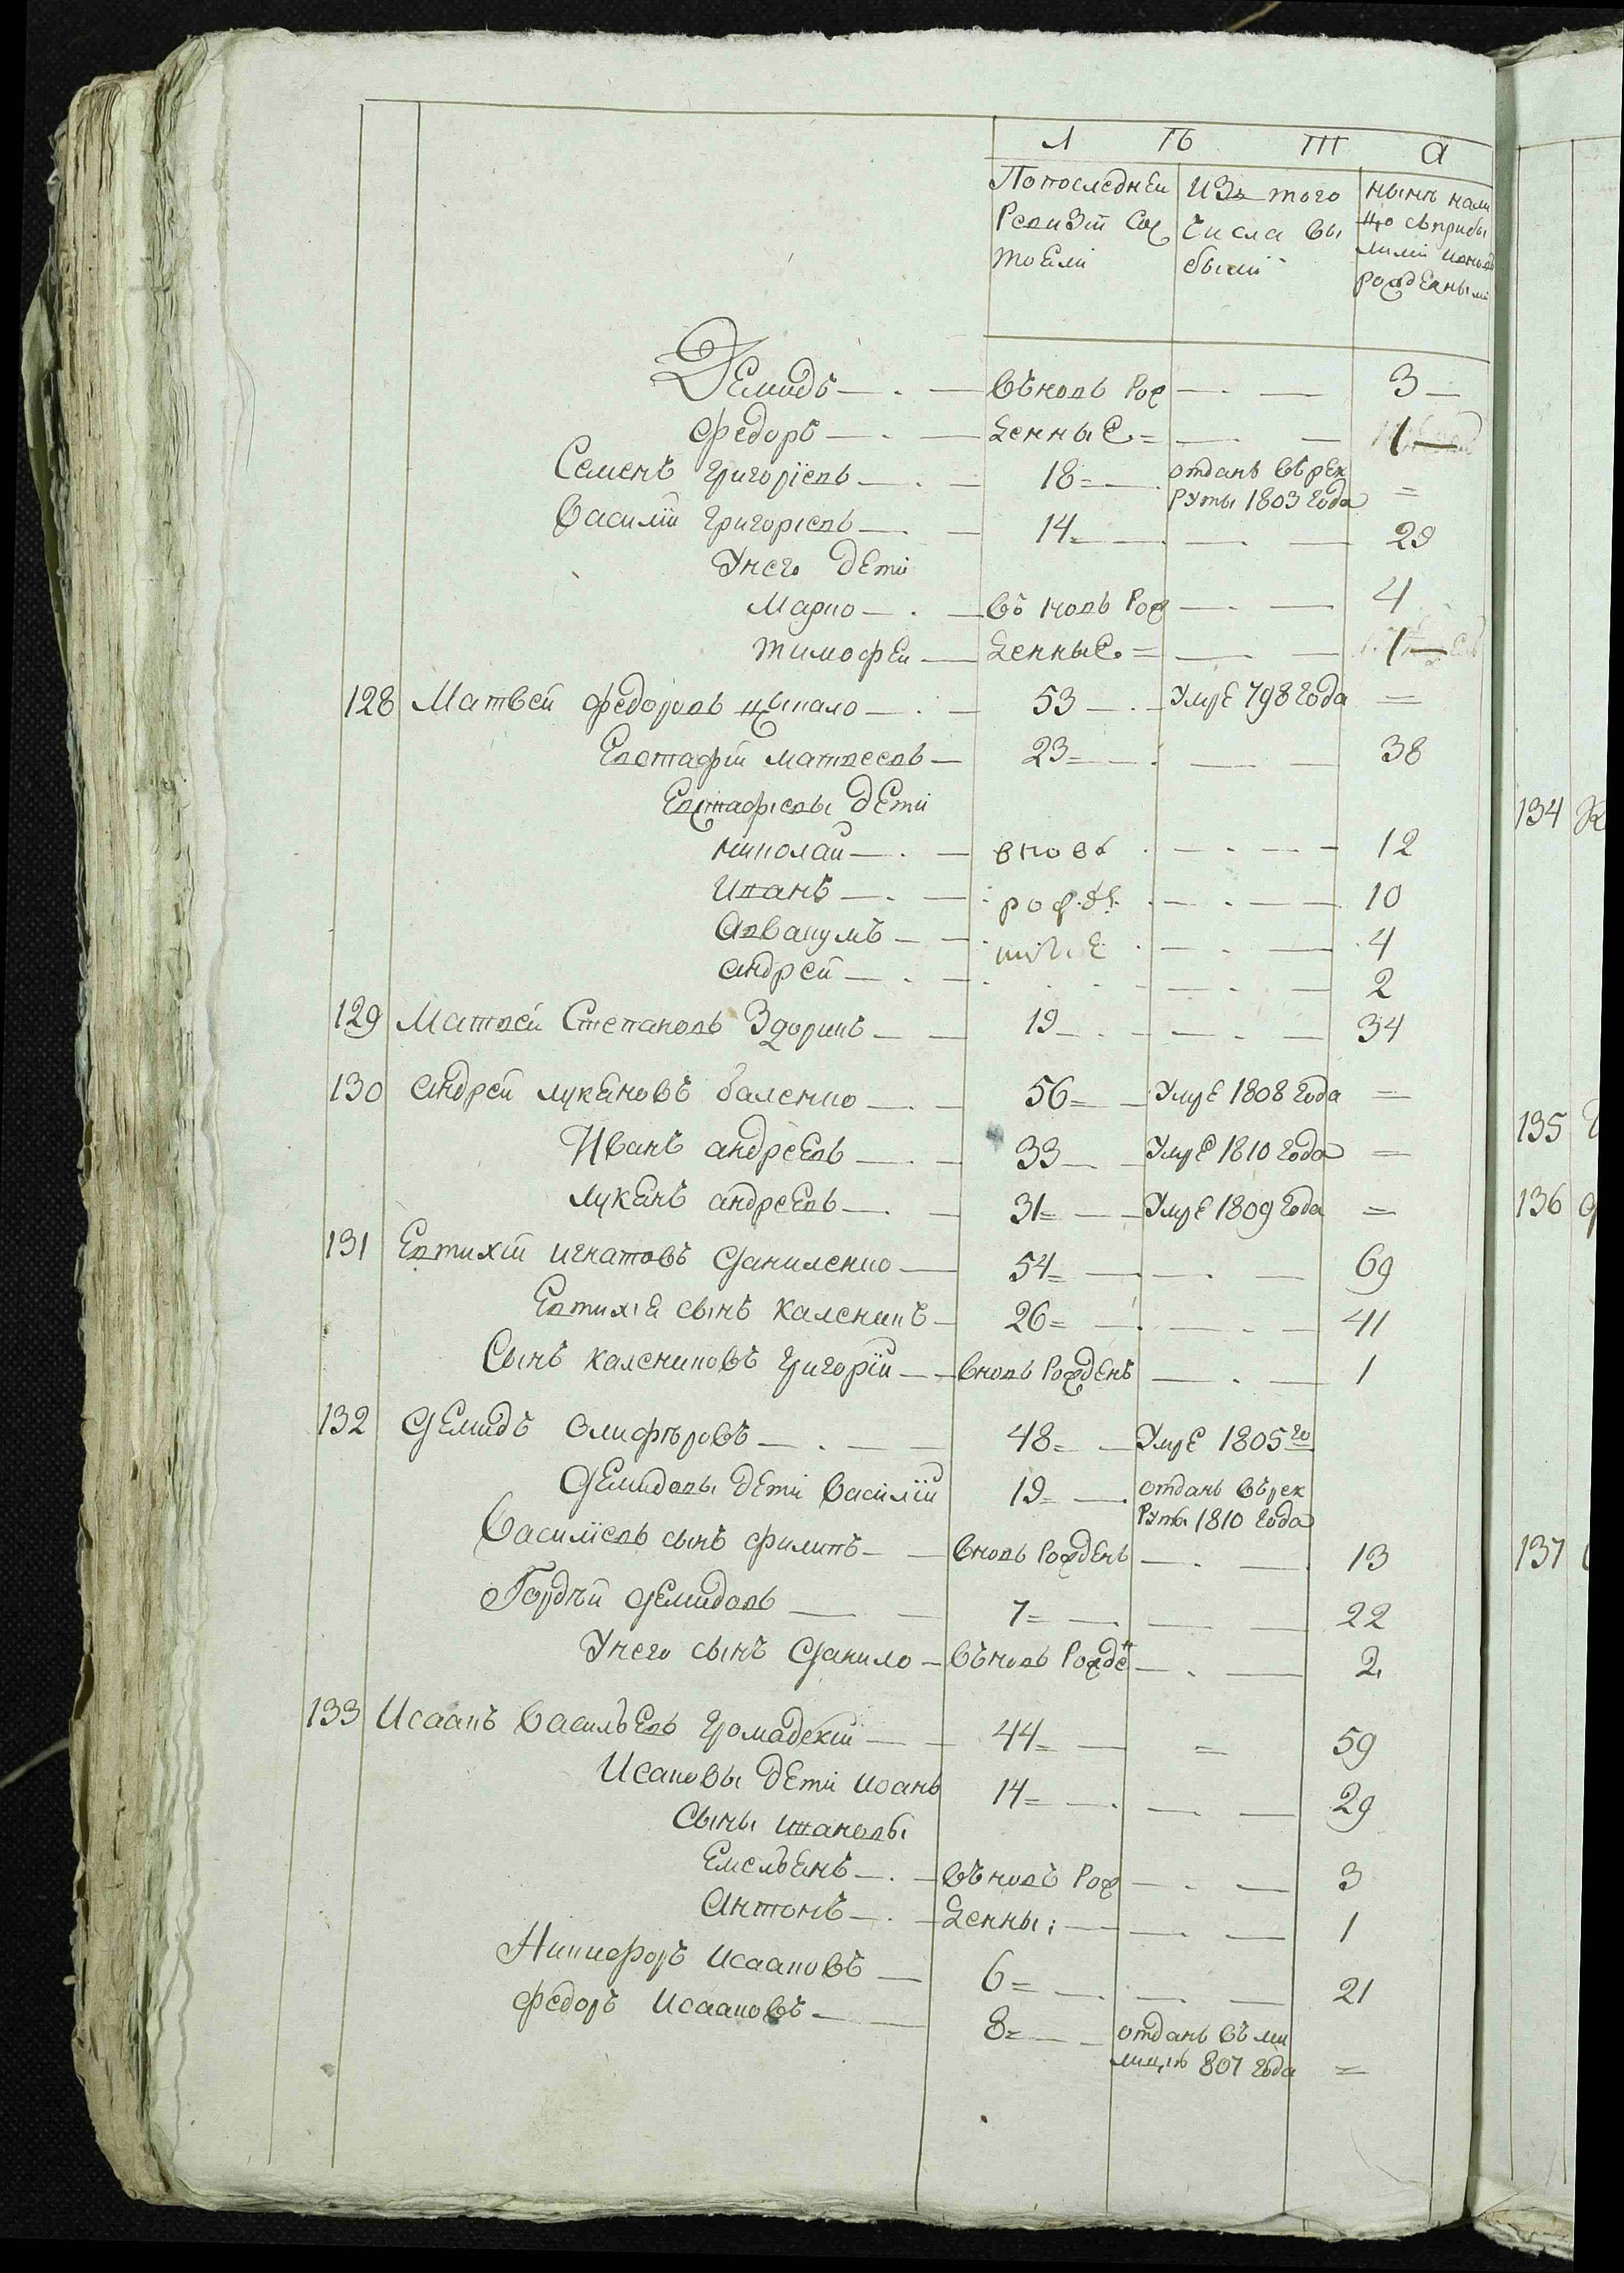 Л ѣ т а
По последней ревизіи состояли
изъ того числа выбыли
нынѣ на лицо съ прибылими и вновь рожденными
Демидъ — въновь рож — 3
Федоръ — денные = — 1
Семенъ Григоріевъ — 18 = отданъ въ рекруты 1803 года =
Василій Григоріевъ — 14 = — 29
У него дети
Марко — въновь рож — 4
Тимофеи — денные = — 1
128 Матвей Федоровъ — 53 — умре 798 года =
Евстафій Матвеевъ — 23 = — 38
Евстафіевы дети
Николай — вновь — 12
Иванъ — рожде — 10
Аввакумъ — нные — 4
Андрей — 2
129 Матвей Степановъ — 19 — 34
130 Андрей Лукяновъ Баленко — 56 = умре 1808 года =
Иванъ Андреевъ — 33 — умре 1810 года =
Лукянъ Андреевъ — 31 = умре 1809 года =
131 Евтихій Игнатовъ Даниленко — 54 = — 69
Евтихія сынъ Каленикъ — 26 = — 41
Сынъ Калениковъ Григорій — вновь рожденъ — 1
132 Демидъ Олифѣровъ — 48 = умре 1805 го
Демидовы дети Василій 19 = отданъ въ рекруты 1810 года
Василіевъ сынъ Филипъ — вновь рожденъ — 13
Гордѣй Демидовъ — 7 = — 22
У него сынъ Данило — въновь рожден — 2
133 Исаакъ Васильевъ Громадскій — 44 = = 59
Исаковы дети Иванъ 14 = — 29
Сыны Ивановы
Емельянъ — въновь рож — 3
Антонъ — денны: — 1
Никифоръ Исааковъ — 6 = — 21
Федоръ Исааковъ — 8 = отданъ въ милицію 807 года =
134
135
136
137